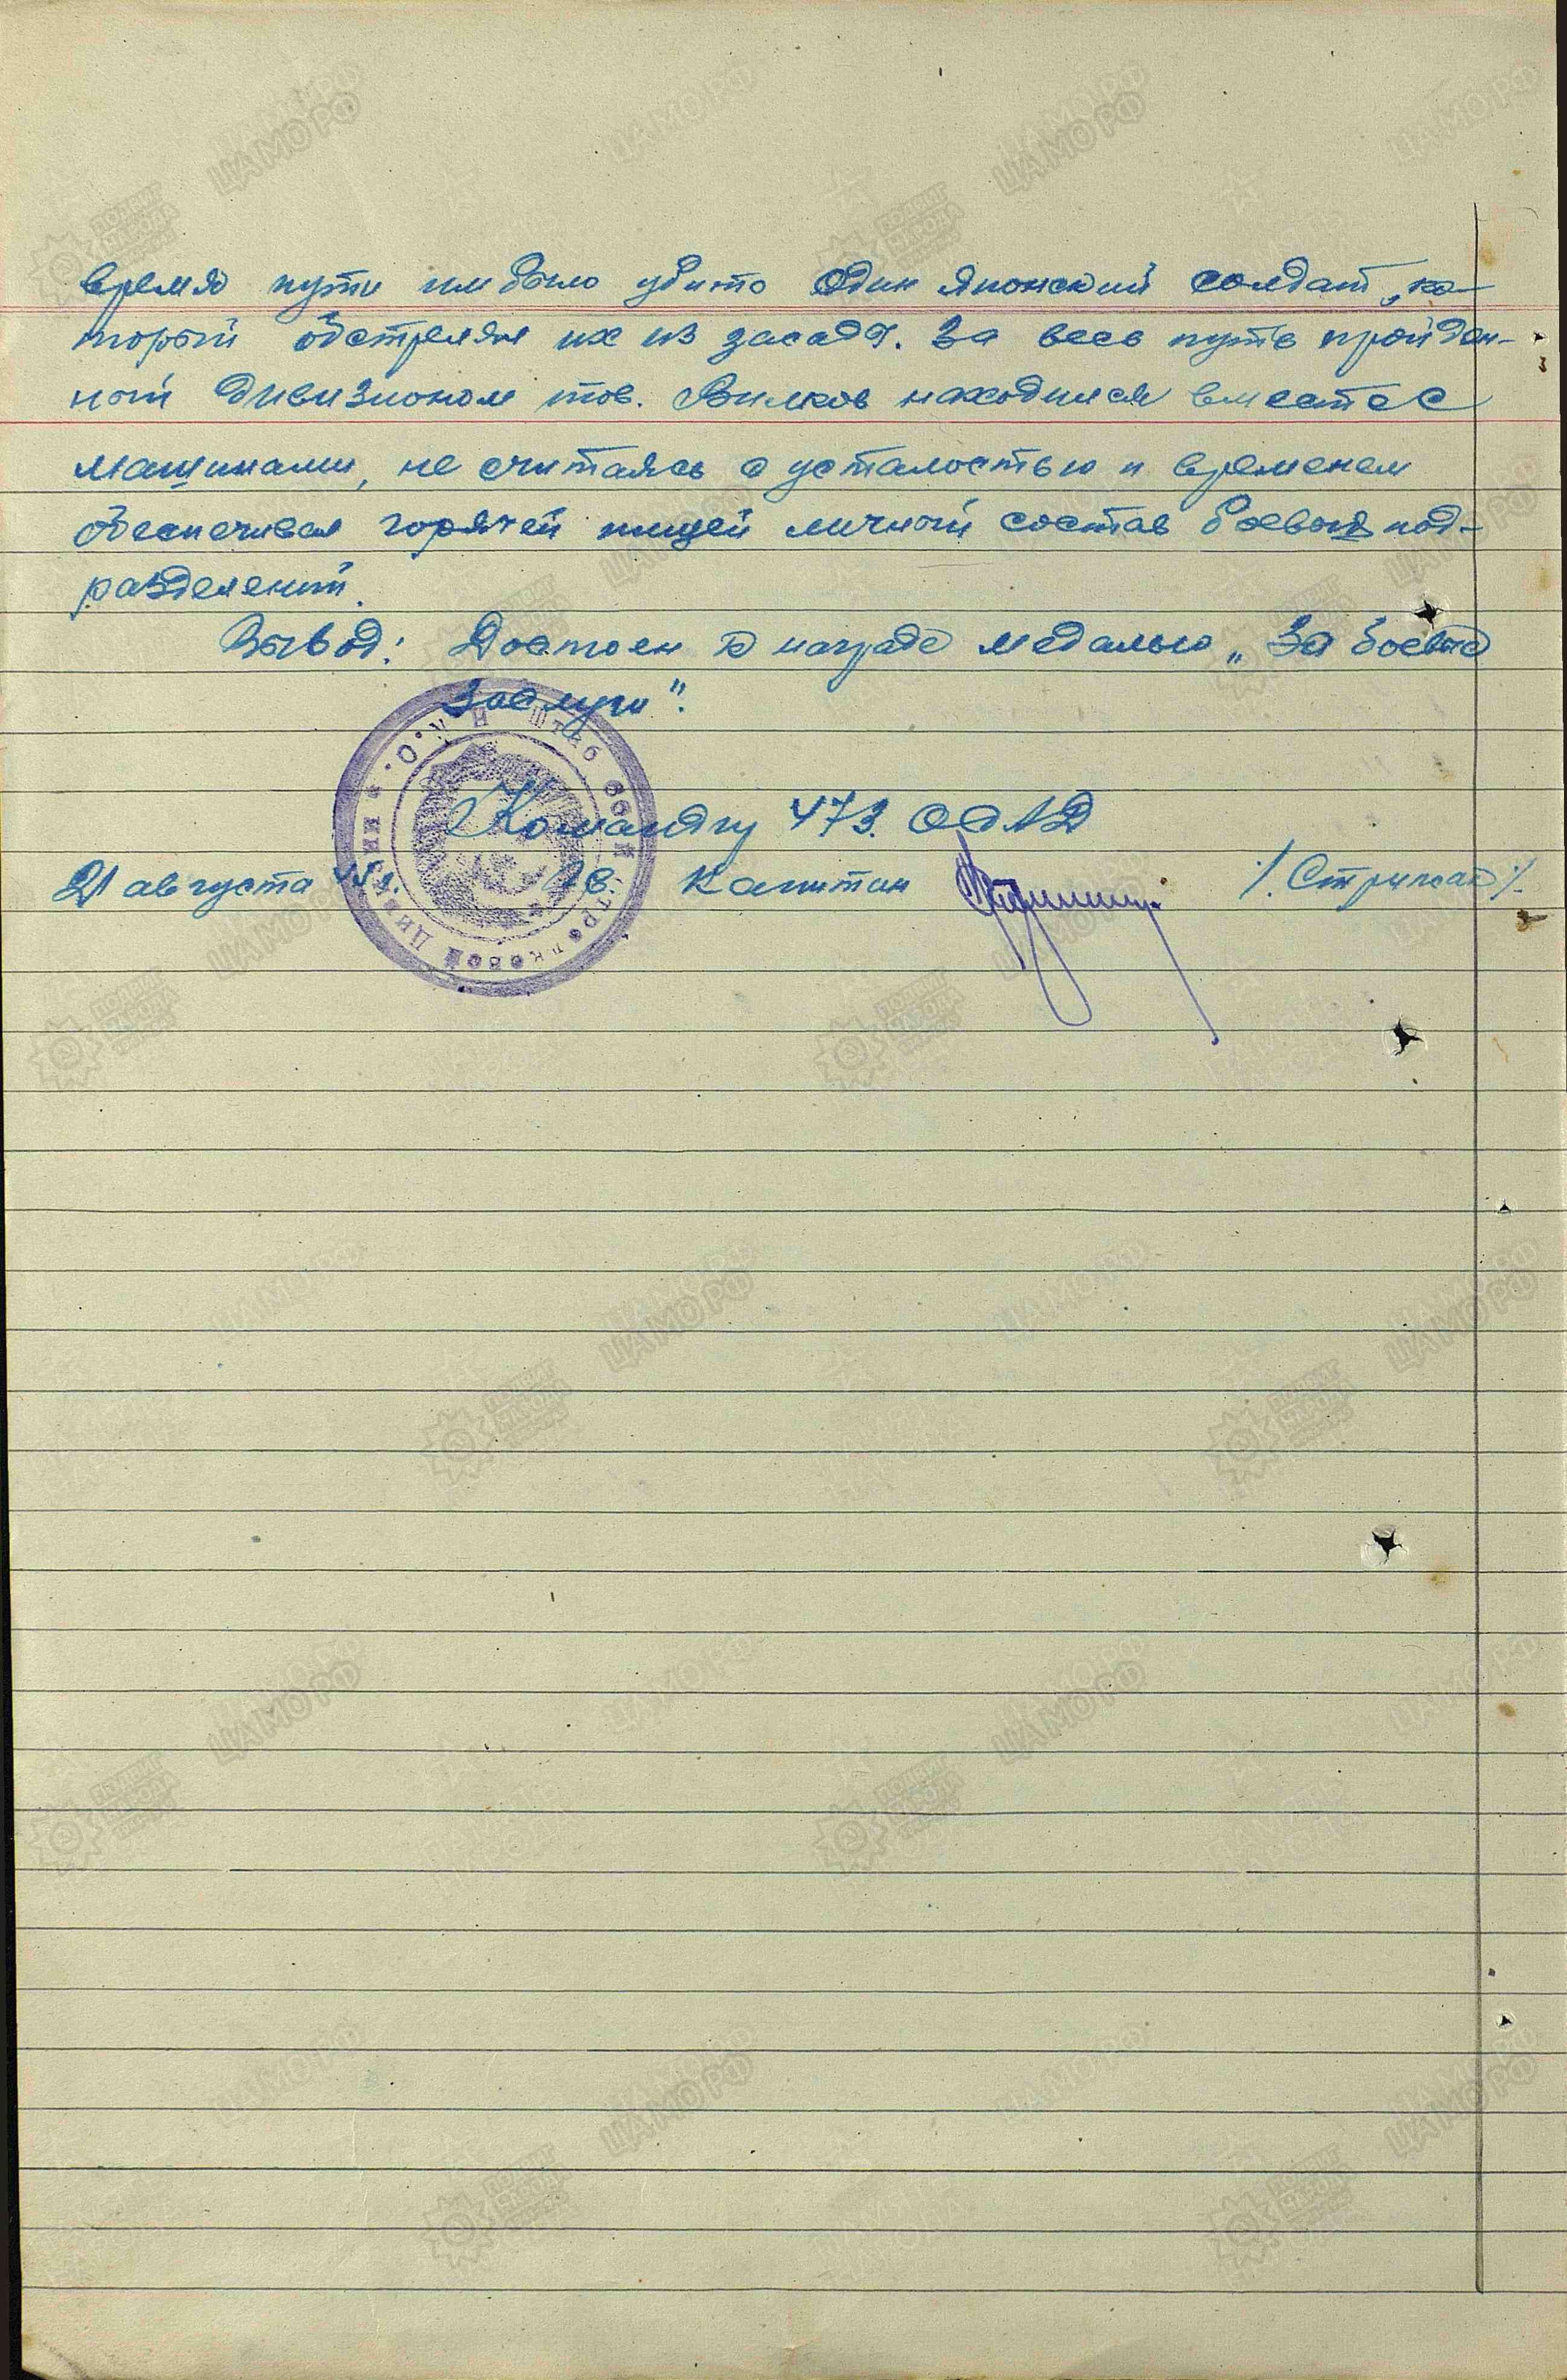 время пути им было убито один японский солдат, ко-
торый обстрелял их из засады. За весь путь пройден-
ный дивизионом тов. Вилков находился вместе с
машинами, не считаясь с усталостью и временем
обеспечивал горячей пищей личный состав боевых под-
разделений.
Вывод: Достоен к награде медалью „За боевые
заслуги".
Командир 473 ОДАД
21 августа 45 г. гв. Капитан /. Стрижак /.
Н.К.О. Штаб стрелковой дивизии
ЦАМО РФ
ПОДВИГ НАРОДА